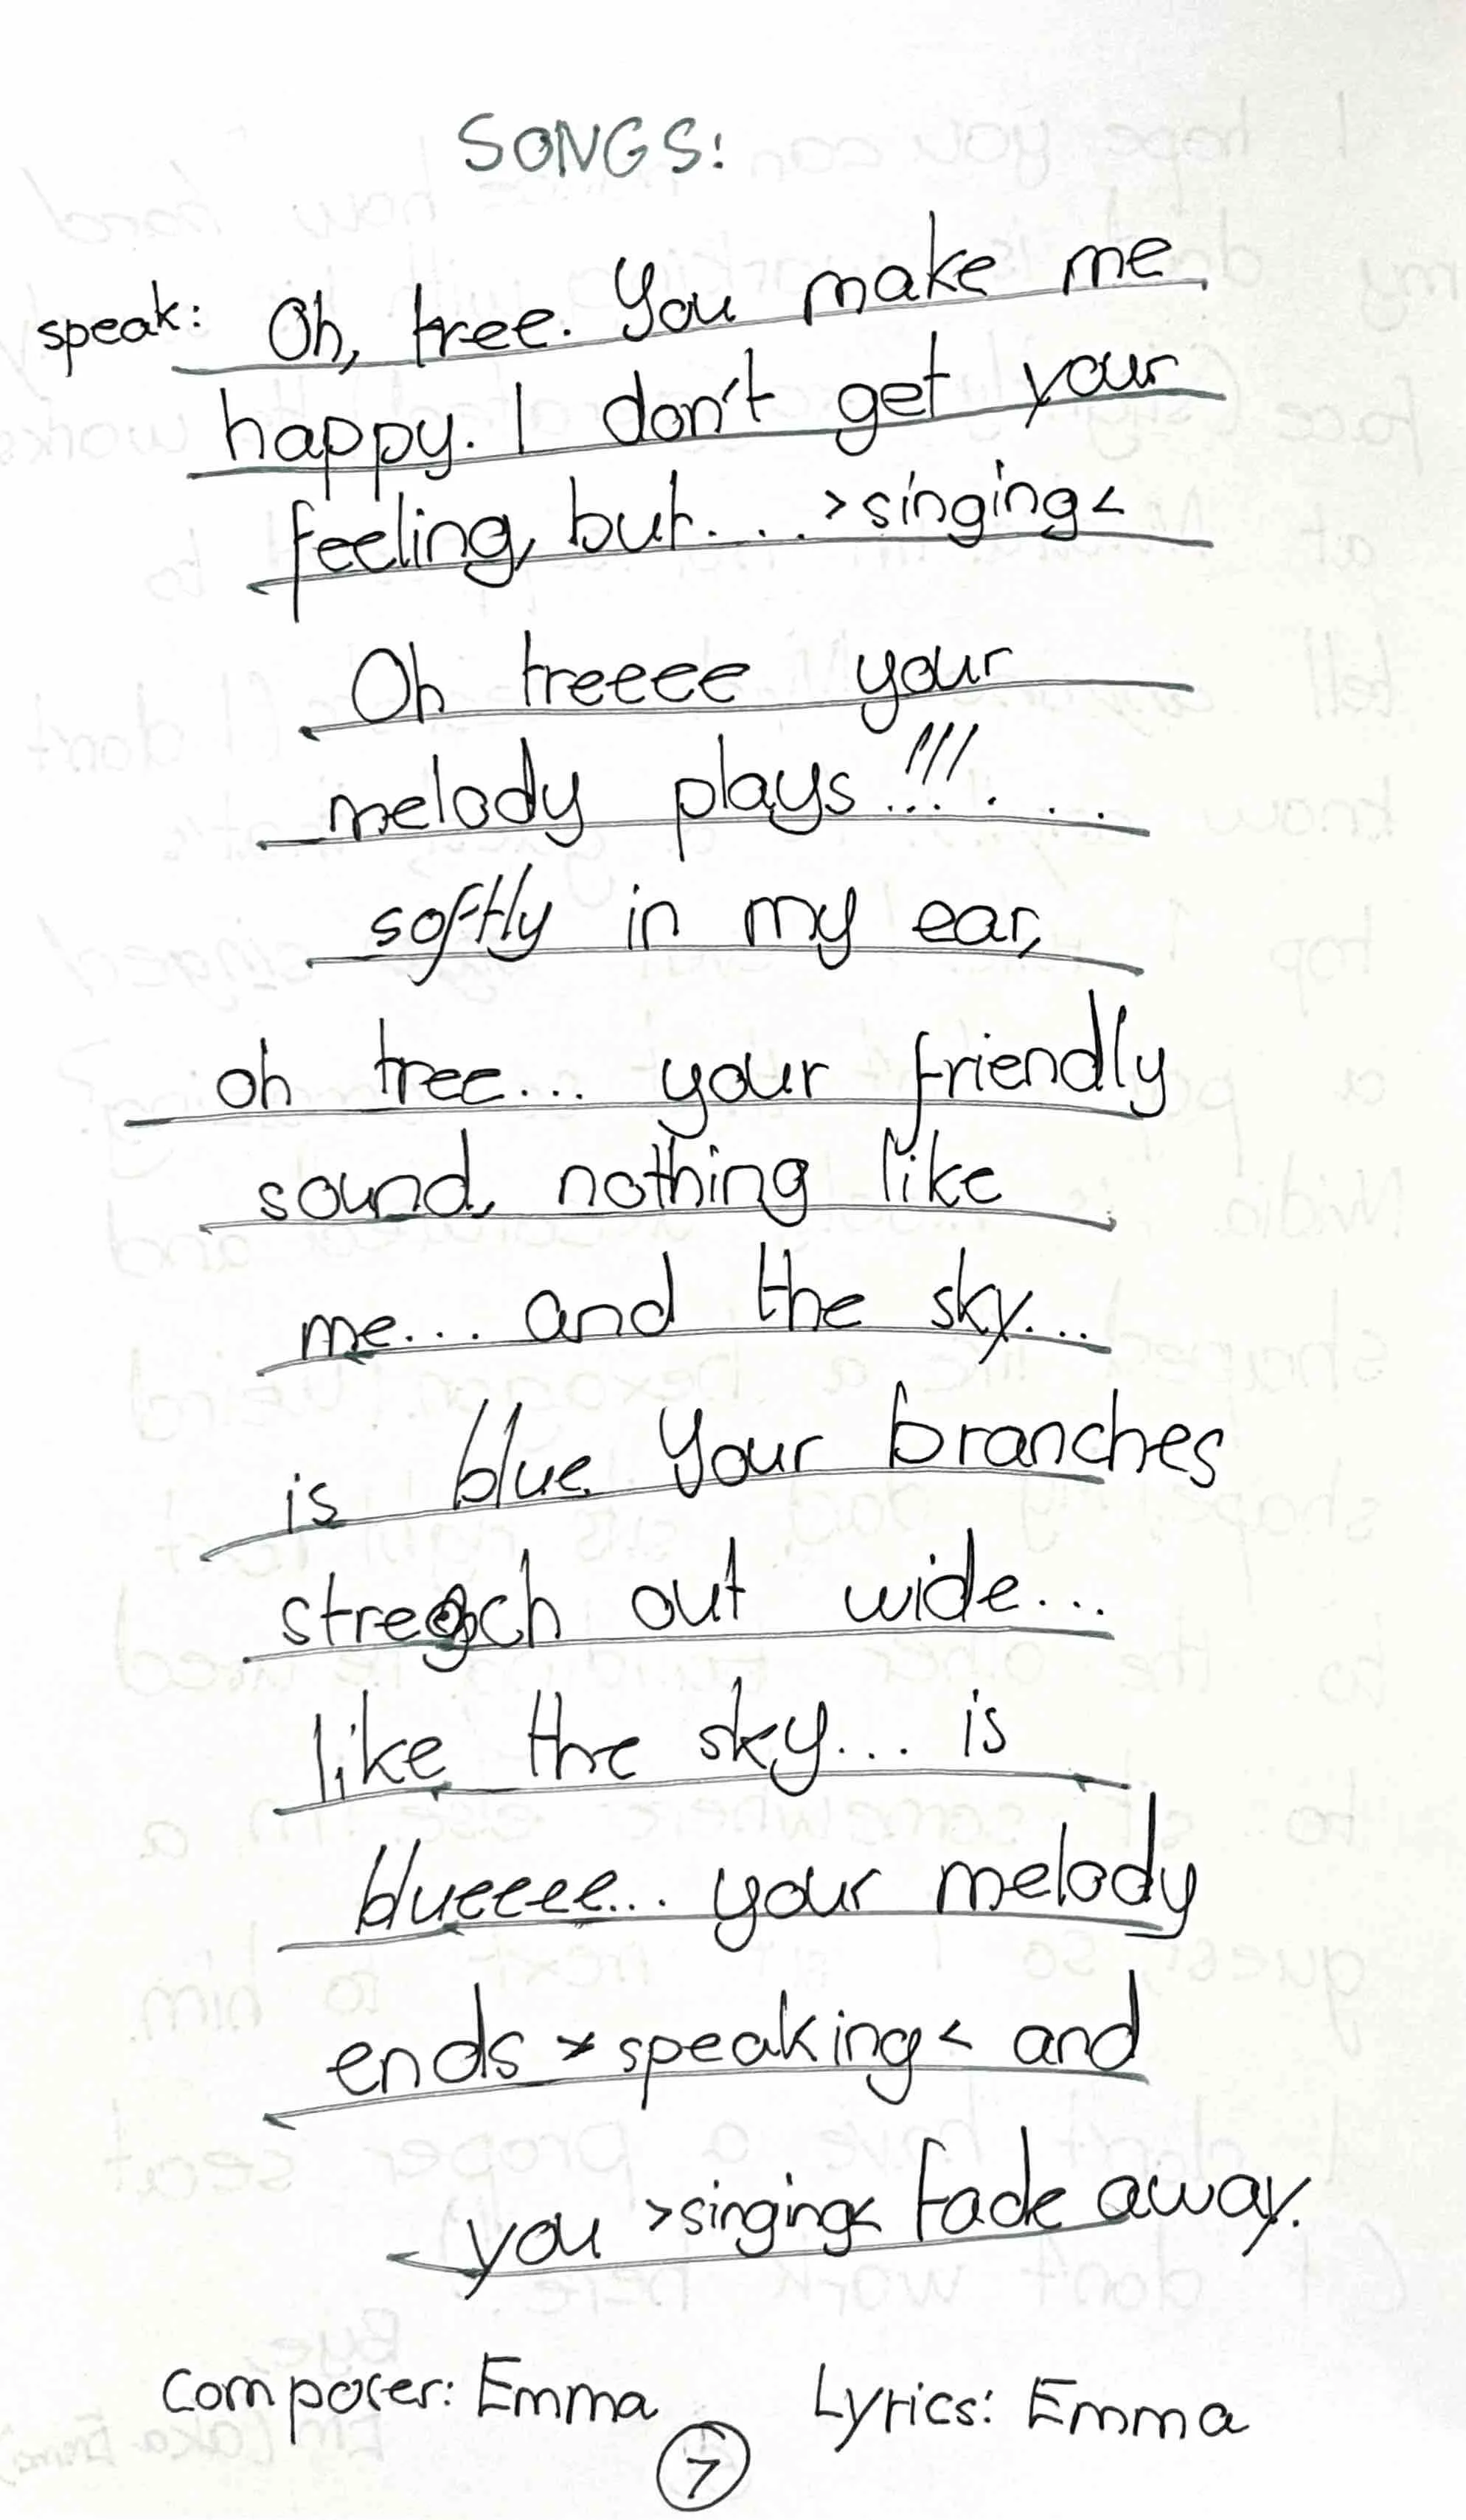 SONGS:
speak: Oh, tree. You make me
happy. I don't get your
feeling, but.... >singing<
Oh treeee your
melody plays!!!...
softly in my ear,
oh tree... your friendly
sound, nothing like
me... and the sky...
is blue. Your branches
out wide...
like the sky... is
blueeee... your melody
ends >speaking< and
you >singing< fade away.
Composer: Emma Lyrics: Emma
7